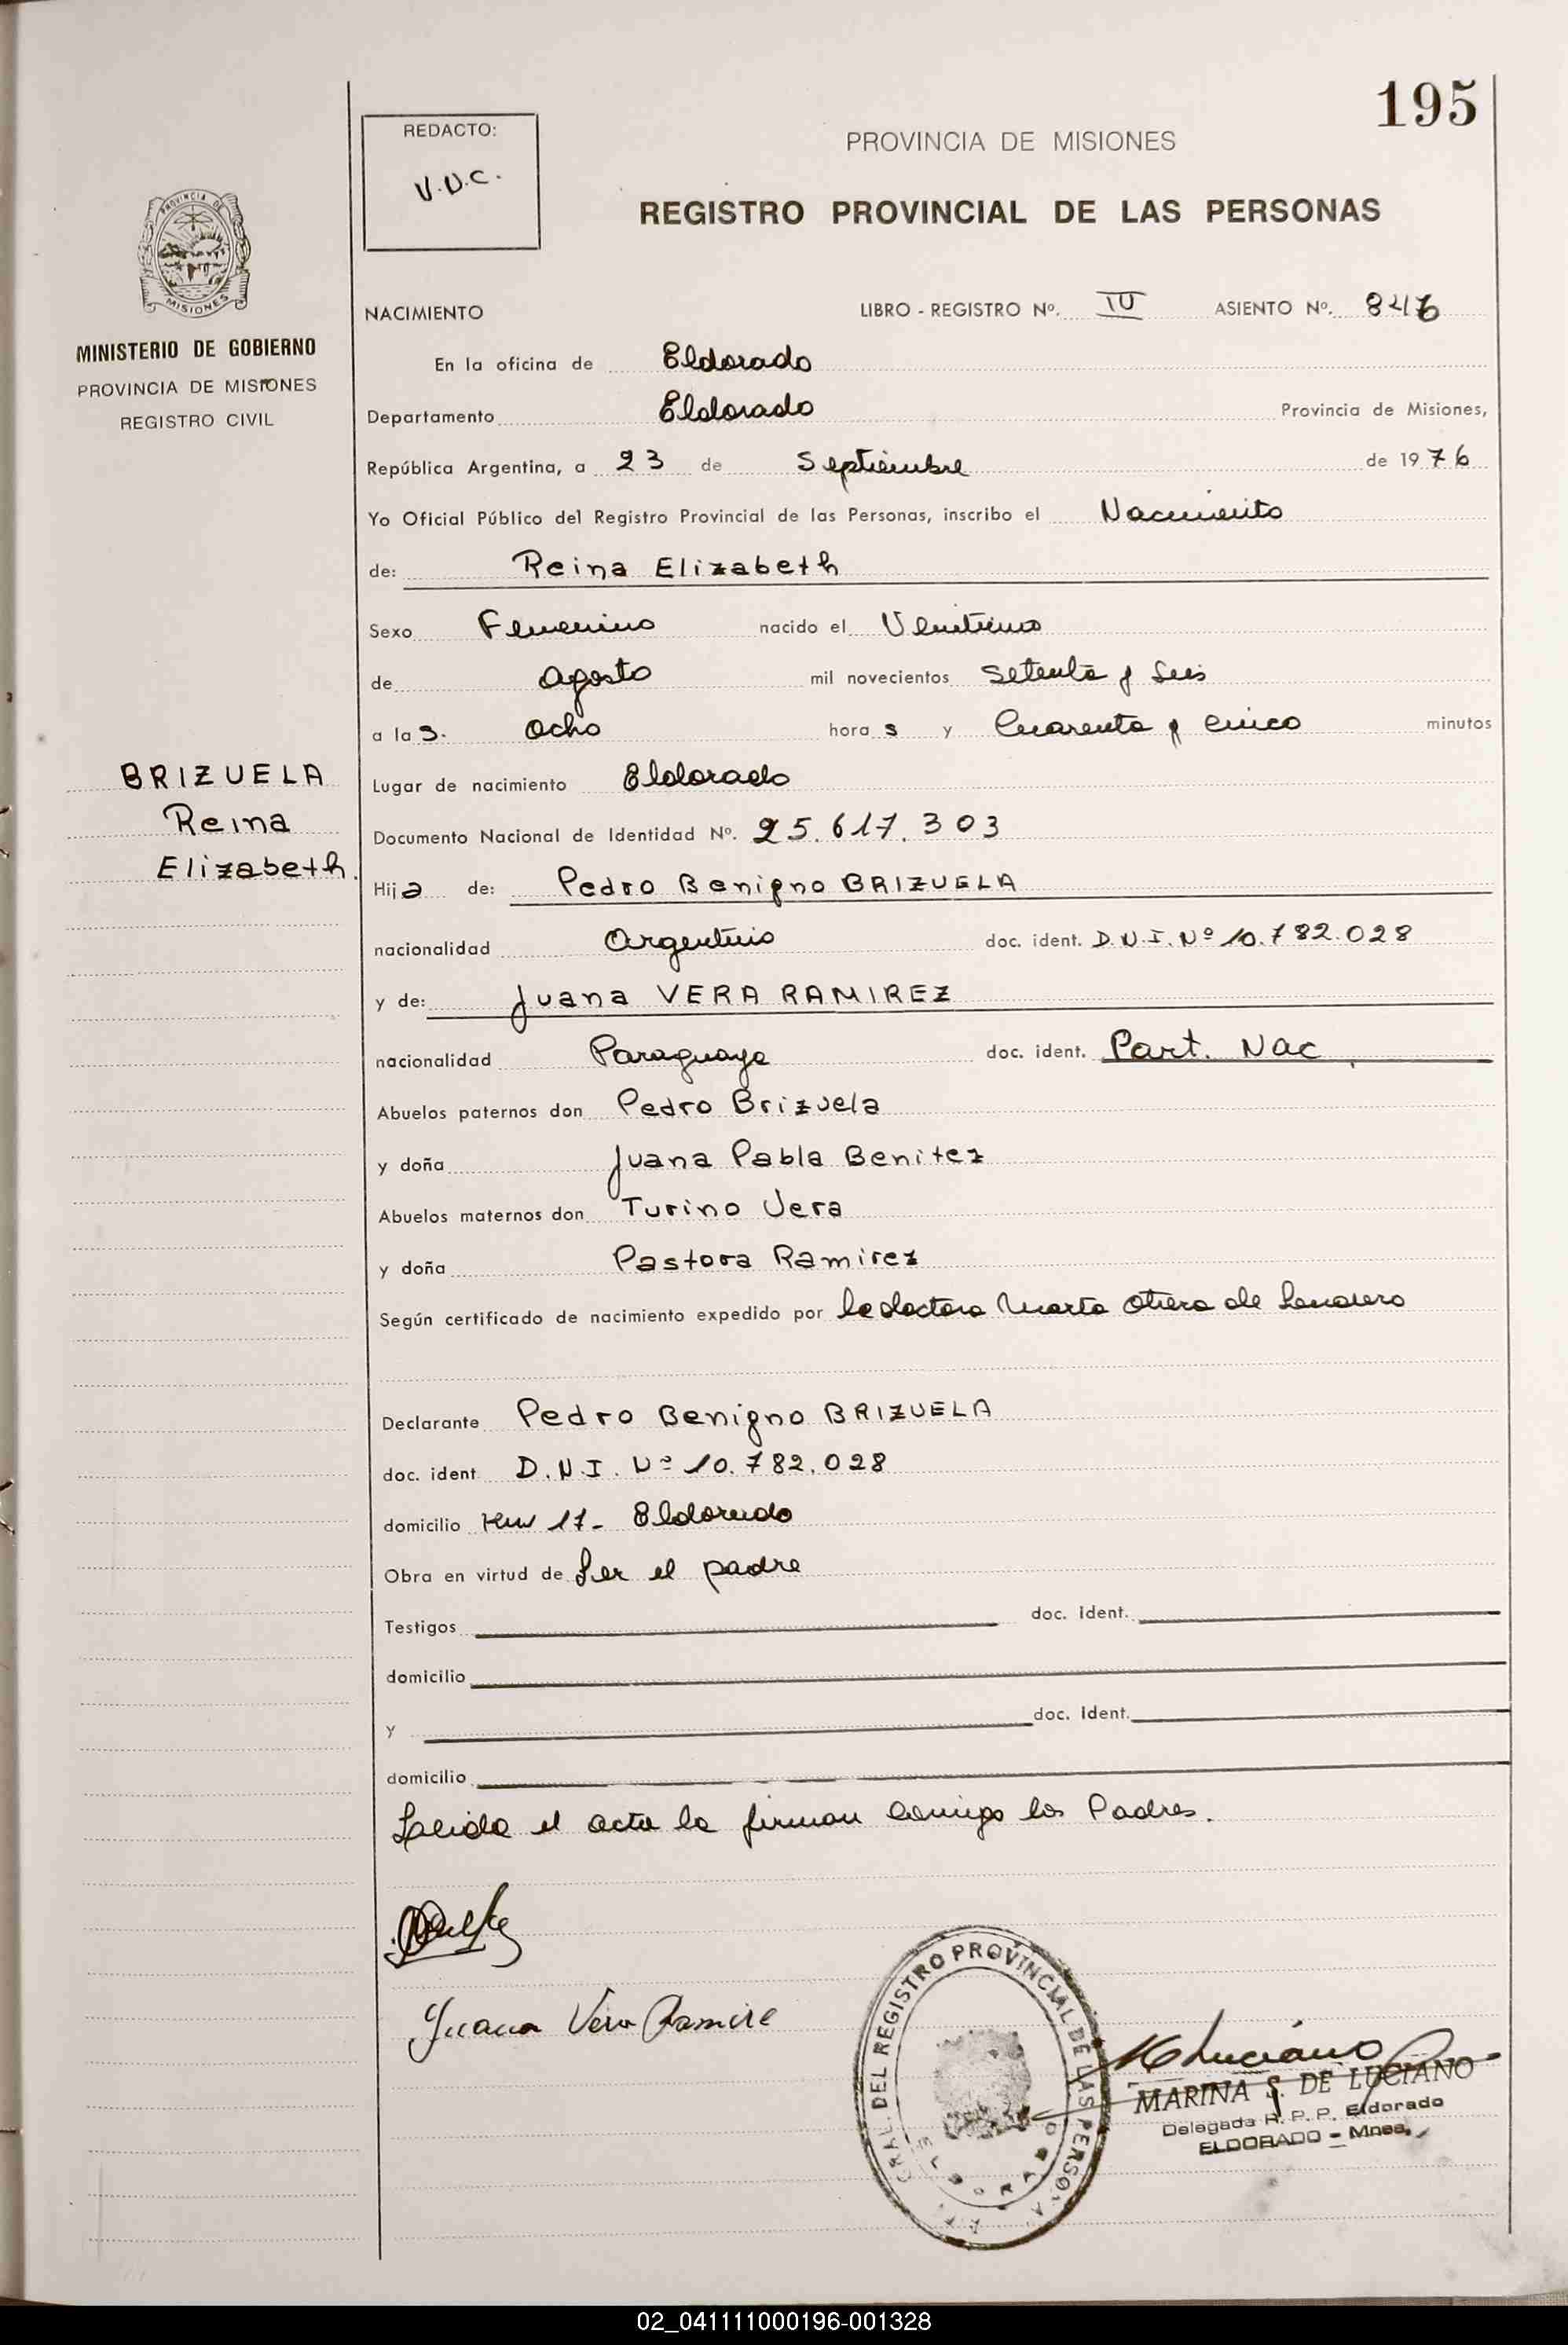 195
REDACTO:
V.D.C.
PROVINCIA DE MISIONES
REGISTRO PROVINCIAL DE LAS PERSONAS
PROVINCIA DE
MISIONES
MINISTERIO DE GOBIERNO
PROVINCIA DE MISIONES
REGISTRO CIVIL
NACIMIENTO LIBRO - REGISTRO Nº. ASIENTO Nº. 846
En la oficina de Eldorado
Departamento Eldorado Provincia de Misiones,
República Argentina, a 23 de Septiembre de 1976
Yo Oficial Público del Registro Provincial de las Personas, inscribo el Nacimiento
de: Reina Elizabeth
Sexo Femenino nacido el
de agosto mil novecientos Setenta y Seis
a las. Ocho horas y Cuarenta y cinco minutos
BRIZUELA
Reina
Elizabeth.
Lugar de nacimiento Eldorado
Documento Nacional de Identidad Nº. 25.617.303
Hija de: Pedro Benigno BRIZUELA
nacionalidad Argentino doc. ident. D.N.I. Nº 10.782.028
y de: Juana VERA RAMIREZ
nacionalidad Paraguaya doc. ident. Part. Nac.
Abuelos paternos don Pedro Brizuela
y doña Juana Pabla Benitez
Abuelos maternos don Turino Vera
y doña Pastora Ramirez
Según certificado de nacimiento expedido por la doctora Marta de
Declarante Pedro Benigno BRIZUELA
doc. ident. D.N.I. Nº 10.782.028
domicilio Km 17- Eldorado
Obra en virtud de Ser el padre
Testigos doc. ident.
domicilio
y doc. ident.
domicilio
Leida el acta la firman conmigo los Padres.
Juana Vera Ramire
DEL REGISTRO PROVINCIAL DE LAS PERSONAS
ELDORADO
M Luciano
MARINA S. DE LUCIANO
Delegada R. P. P. Eldorado
ELDORADO - Mnes.
02_041111000196-001328